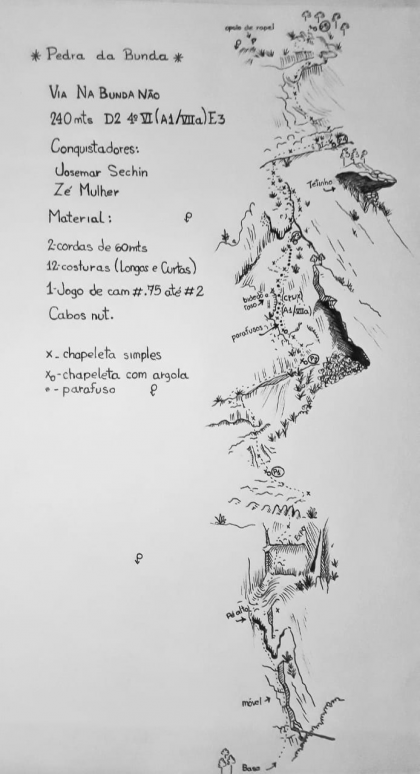 * Pedra da Bunda *
Via Na Bunda Não
240 mts D2 4º VI (A1/VIIa) E3
Conquistadores:
Josemar Sechin
Zé Mulher
Material:
2-cordas de 60mts
12-costuras (Longas e Curtas)
1-Jogo de cam #.75 até #2
Cabos nut.
x - chapeleta simples
xo - chapeleta com argola
• - parafuso
Teiunho
(crux)
(A1/VIIa)
parafusos
P2
P1
móvel
Base